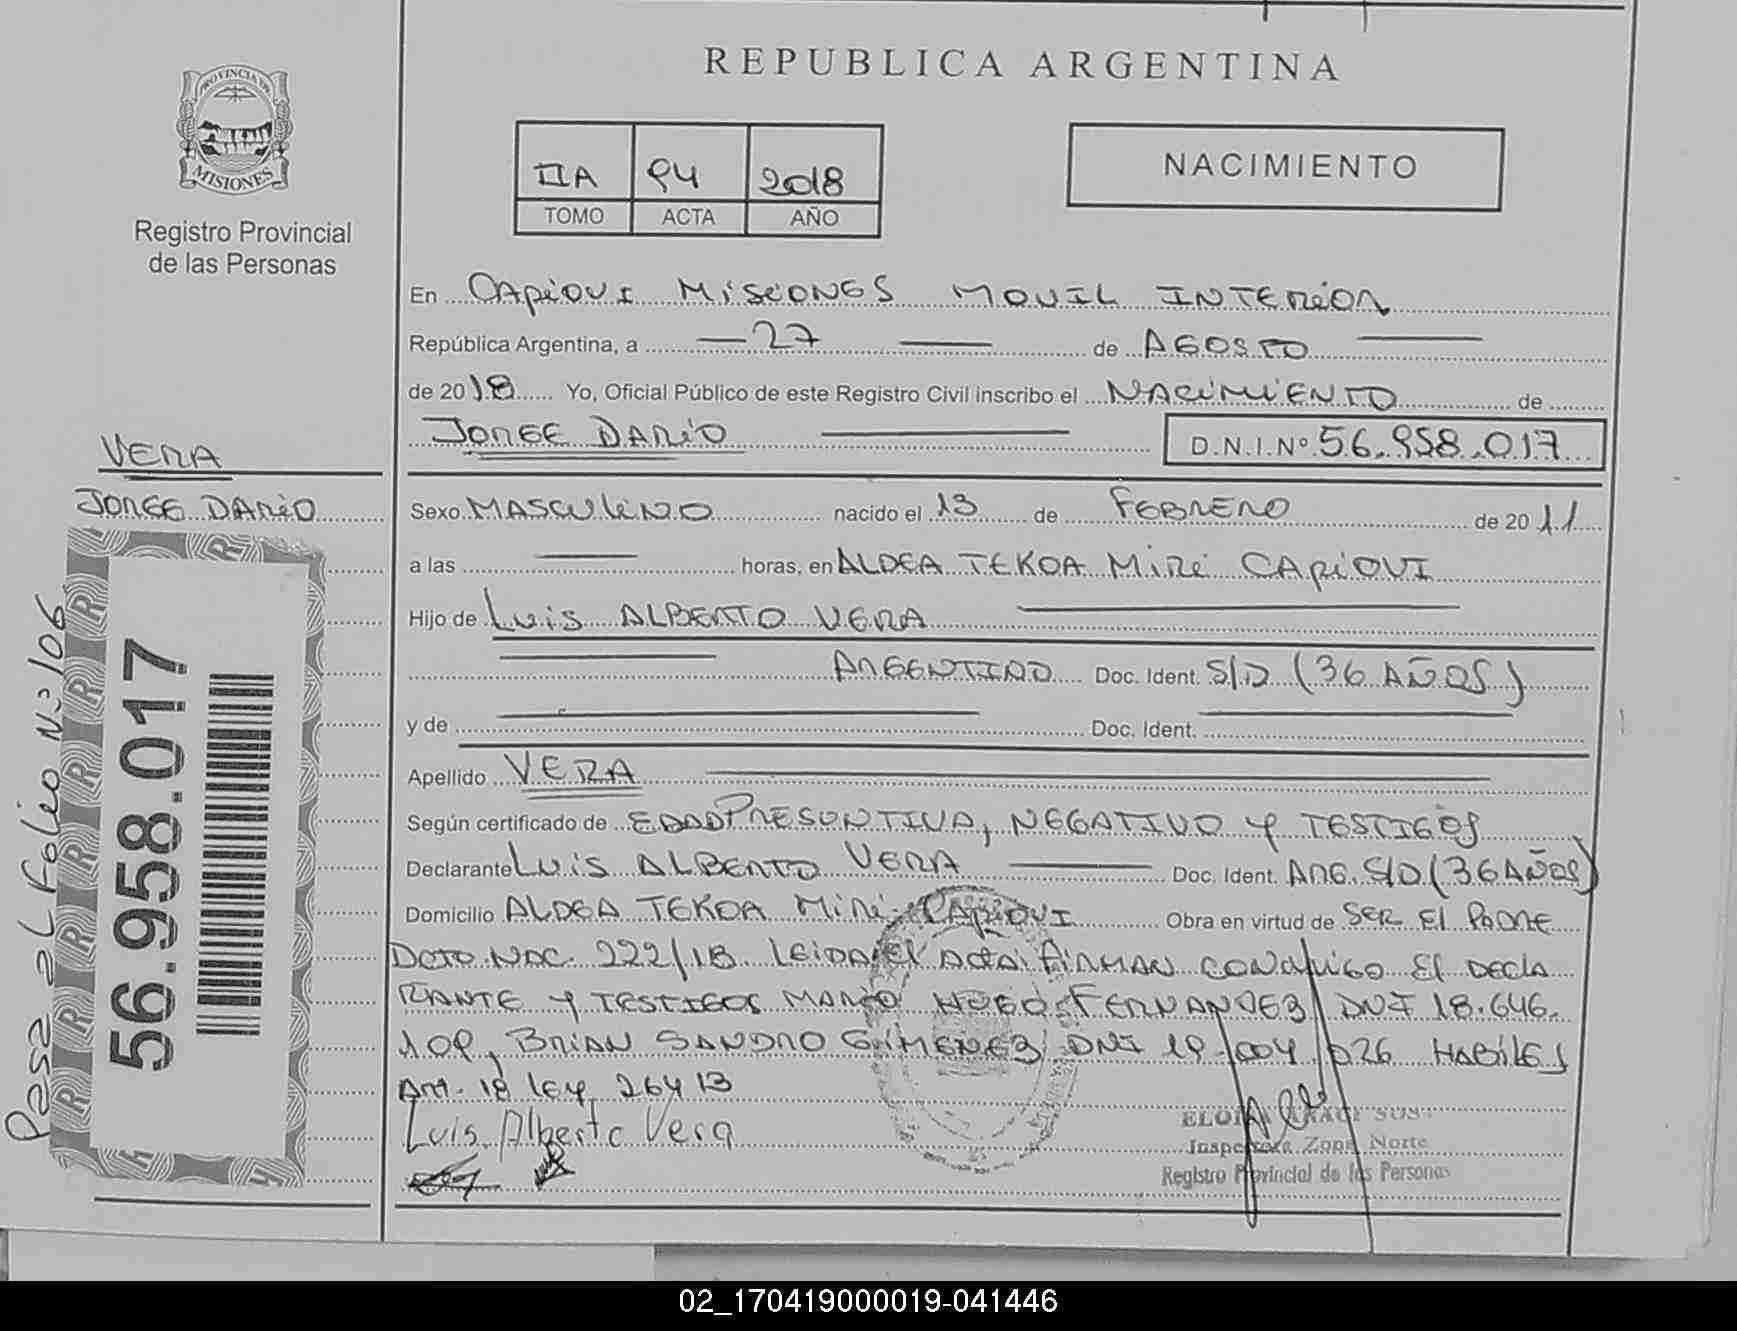 REPUBLICA ARGENTINA
PROVINCIA DE
MISIONES
Registro Provincial
de las Personas
IIA 94 2018
TOMO ACTA AÑO
NACIMIENTO
En CAPIOVI MISIONES MOVIL INTERIOR
República Argentina, a 27 de AGOSTO
de 2018 Yo, Oficial Público de este Registro Civil inscribo el NACIMIENTO de
JORGE DARIO D.N.I.Nº 56.958.017
VERA
JORGE DARIO
Sexo MASCULINO nacido el 13 de FEBRERO de 2011
a las horas, en ALDEA TEKOA MIRI CAPIOVI
Hijo de LUIS ALBERTO VERA
ARGENTINO Doc. Ident. S/D (36 AÑOS)
y de Doc. Ident.
Apellido VERA
Según certificado de EDAD PRESUNTIVA, NEGATIVO Y TESTIGOS
Declarante LUIS ALBERTO VERA Doc. Ident. ARG. S/D (36 AÑOS)
Domicilio ALDEA TEKOA MIRI CAPIOVI Obra en virtud de SER EL PADRE
DCTO NAC. 222/18 LEIDA EL ACTA FIRMAN CONMIGO EL DECLA
RANTE Y TESTIGOS MARIO HUGO FERNANDEZ DNI 18.646.
109, BRIAN SANDRO GIMENEZ DNI 19.004.026 HABILES
Art. 18 ley 26413
Luis Alberto Vera
Inspectora Zona Norte
Registro Provincial de las Personas
56.958.017
Pasa al Folio Nº 106
02_170419000019-041446